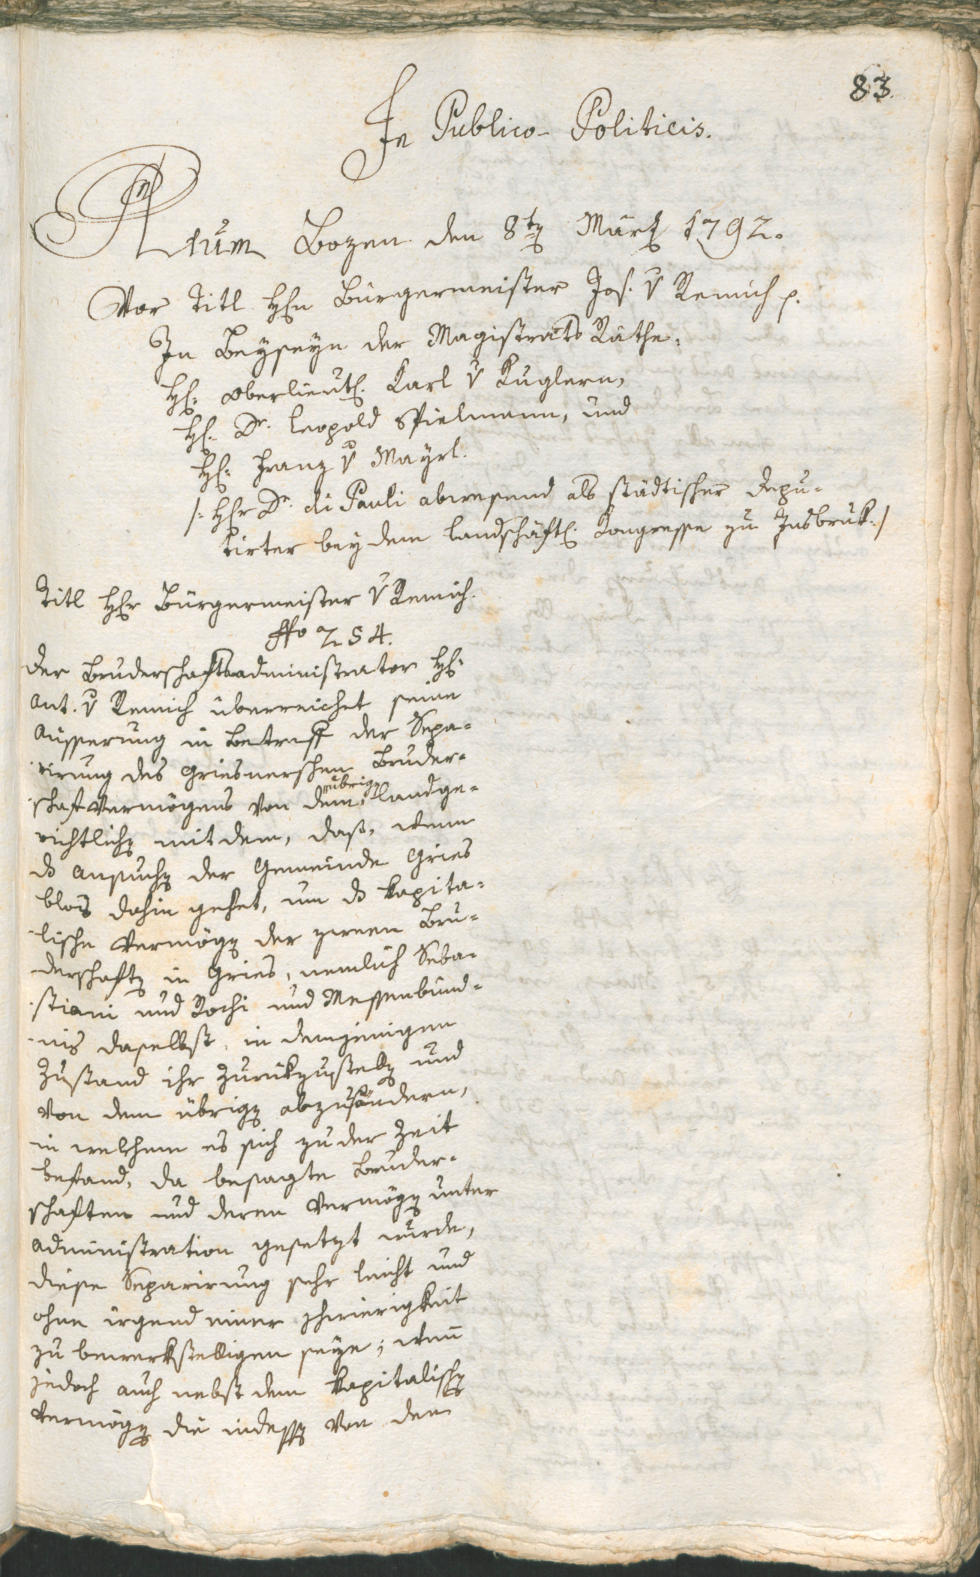 83.
In Publico-Politicis.
Actum Bozen den 8ten März 1792.
Vor Titl Hrn Bürgermeister Jos. v Remich p.
In Beyseyn der Magistrats Räthe,
H: Oberlieut: Karl v Kuglern,
H: Dr. Leopold Spielmann, und
H: Franz v Mayrl.
/: Hr Dr. di Pauli abwesend als städtischer Depu-
tirter bey dem landschäftl: Kongresse zu Insbruk :/
Titl Hr Bürgermeister v Remich.
No 254.
Der Bruderschaftsadministrator H:
Ant. v Remich überreichet seine
Äusserung in Betreff der Sepa-
rirung des Griesnerschen Bruder-
schaftvermögens von dem übrigen Landge-
richtlichen mit dem, daß, wenn
ds Ansuchen der Gemeinde Gries
blos dahin gehet, um ds kapita-
lische Vermögen der zween Bru-
derschaften in Gries, nemlich Seba-
stiani und Rochi und Messenbünd-
nis daselbst, in demjenigen
Zustand ihr zurükzustellen und
von dem übrigen abzusöndern,
in welchem es sich zu der Zeit
befand, da besagte Bruder-
schaften und deren Vermögen unter
Administration gesetzt wurde,
diese Separirung sehr leicht und
ohne irgend einer Schwierigkeit
zu bewerkstelligen seye; wenn
jedoch auch nebst dem kapitalischen
Vermögen die indessen von dem